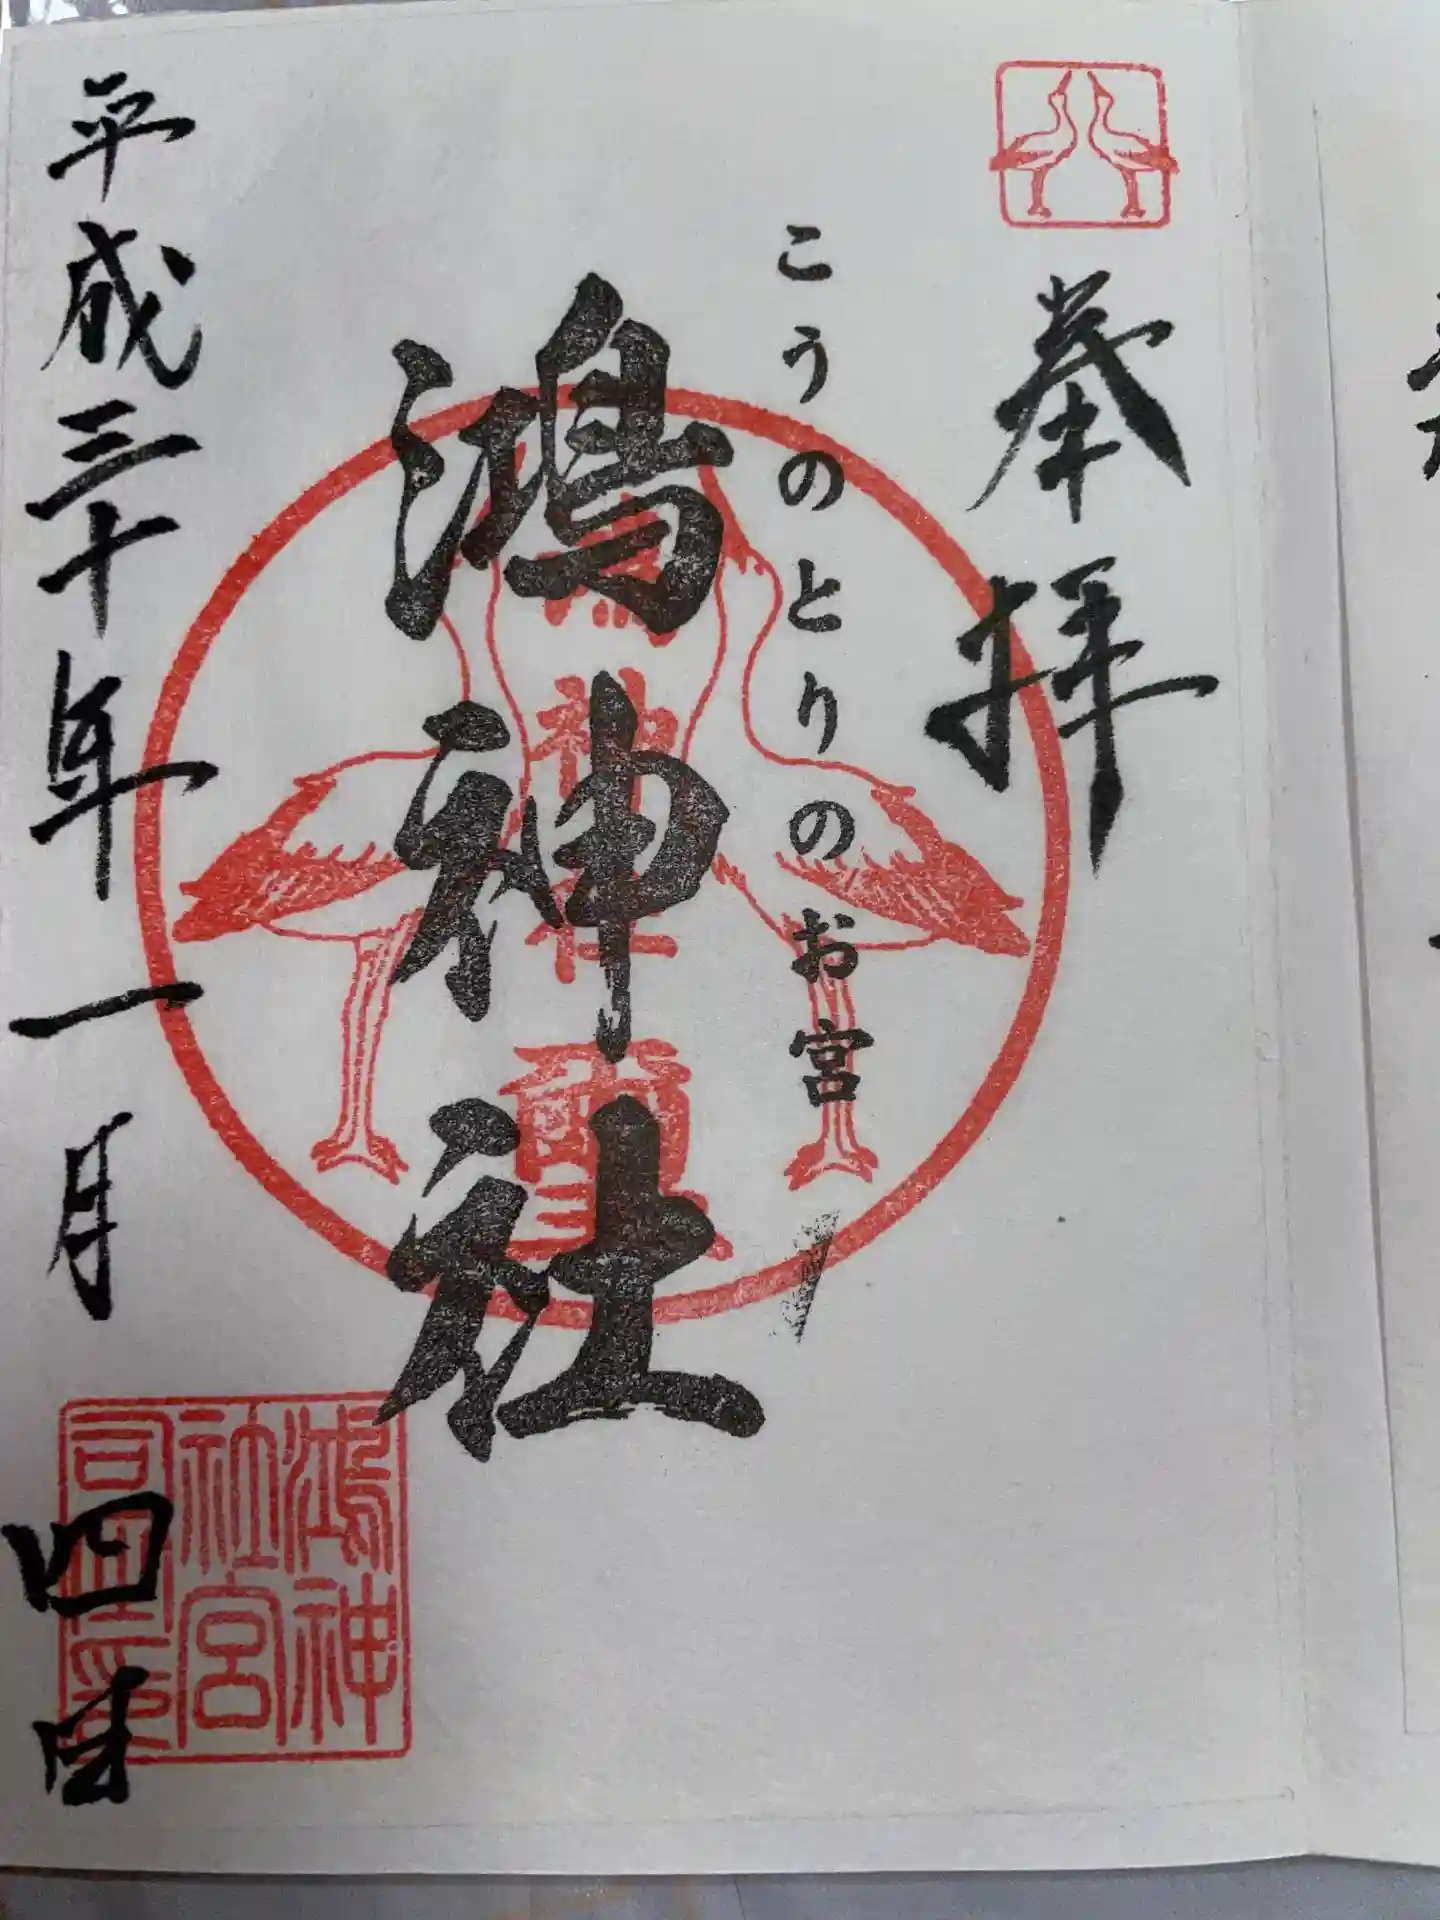 奉拝
こうのとりのお宮
鴻神社
鴻神社宮司之印
平成三十年一月四日